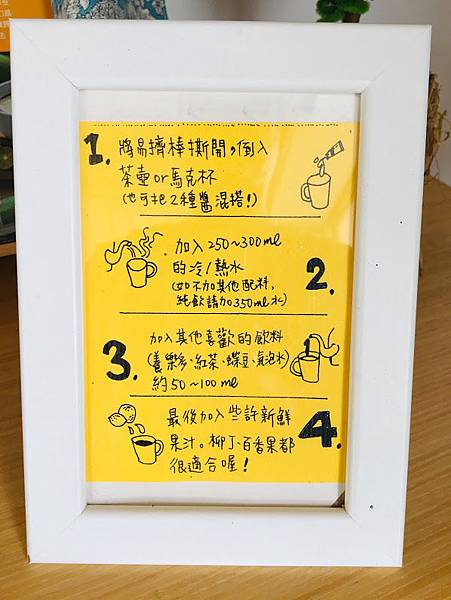 1. 將易擠棒撕開，倒入
茶壺or馬克杯
(也可把2種醬混搭!)
加入250~300ml
的冷/熱水
(如不加其他配料，
純飲請加350ml水)
2.
加入其他喜歡的飲料
(養樂多、紅茶、蝶豆、氣泡水)
約50~100ml
3.
最後加入些許新鮮
果汁。柳丁、百香果都
很適合喔!
4.